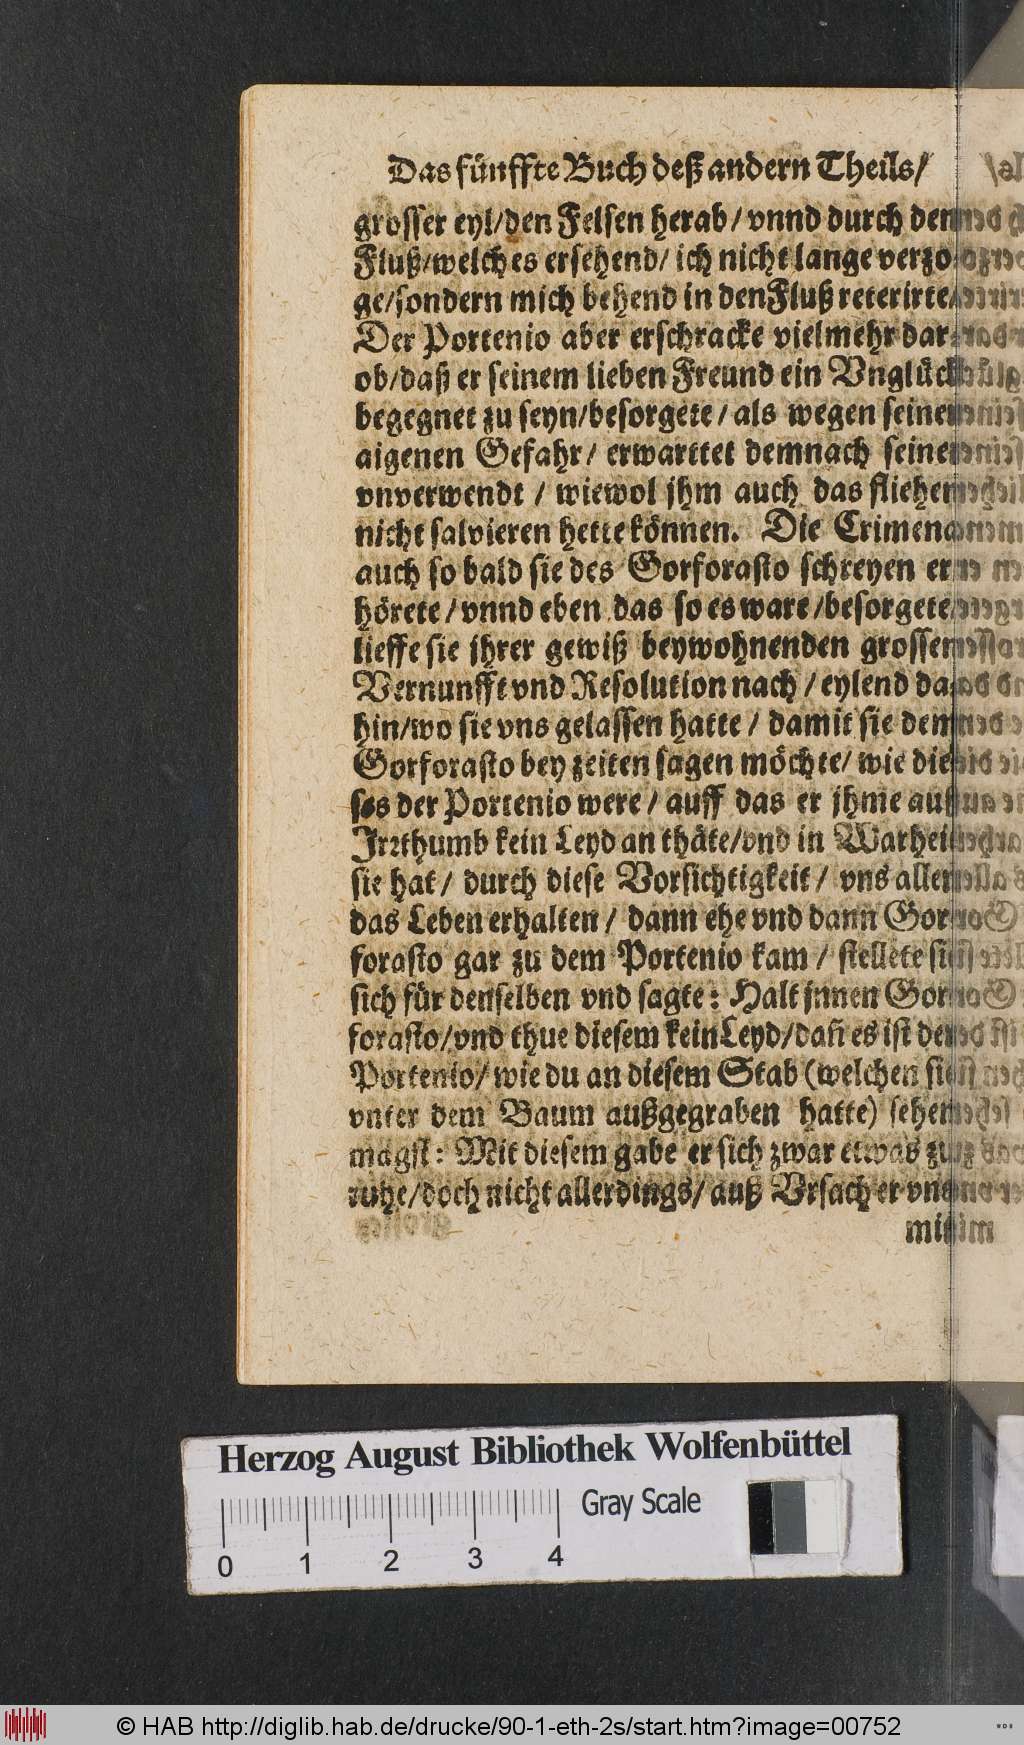 Das fünffte Buch deß andern Theils/
grosser eyl/den Felsen herab/vnnd durch den
Fluß/welches ersehend/ ich nicht lange verzo-
ge/sondern mich behend in den Fluß reterirte/
Der Portenio aber erschracke vielmehr dar-
ob/daß er seinem lieben Freund ein Vnglück
begegnet zu seyn/besorgete/als wegen seiner
aigenen Gefahr/ erwarttet demnach seiner
vnverwendt / wiewol jhm auch das fliehen
nicht salvieren hette können. Die Crimena
auch so bald sie des Gorforasto schreyen er
hörete/vnnd eben das so es ware/besorgete/
lieffe sie jhrer gewiß beywohnenden grossen
Vernunfft vnd Resolution nach/eylend da
hin/wo sie vns gelassen hatte/ damit sie dem
Gorforasto bey zeiten sagen möchte/ wie die
ses der Portenio were/ auff das er jhme auß
Irrthumb kein Leyd an thäte/vnd in Warheit
sie hat/ durch diese Vorsichtigkeit/ vns allen
das Leben erhalten/ dann ehe vnd dann Gor
forasto gar zu dem Portenio kam/ stellete sie
sich für denselben vnd sagte: Halt jnnen Gor
forasto/vnd thue diesem kein Leyd/dañ es ist der
Portenio/wie du an diesem Stab (welchen sie
vnter dem Baum außgegraben hatte) sehen
magst: Mit diesem gabe er sich zwar etwas zu
ruhe/doch nicht allerdings/auß Vrsach er vn
mi
Herzog August Bibliothek Wolfenbüttel
Gray Scale
0 1 2 3 4
© HAB http://diglib.hab.de/drucke/90-1-eth-2s/start.htm?image=00752